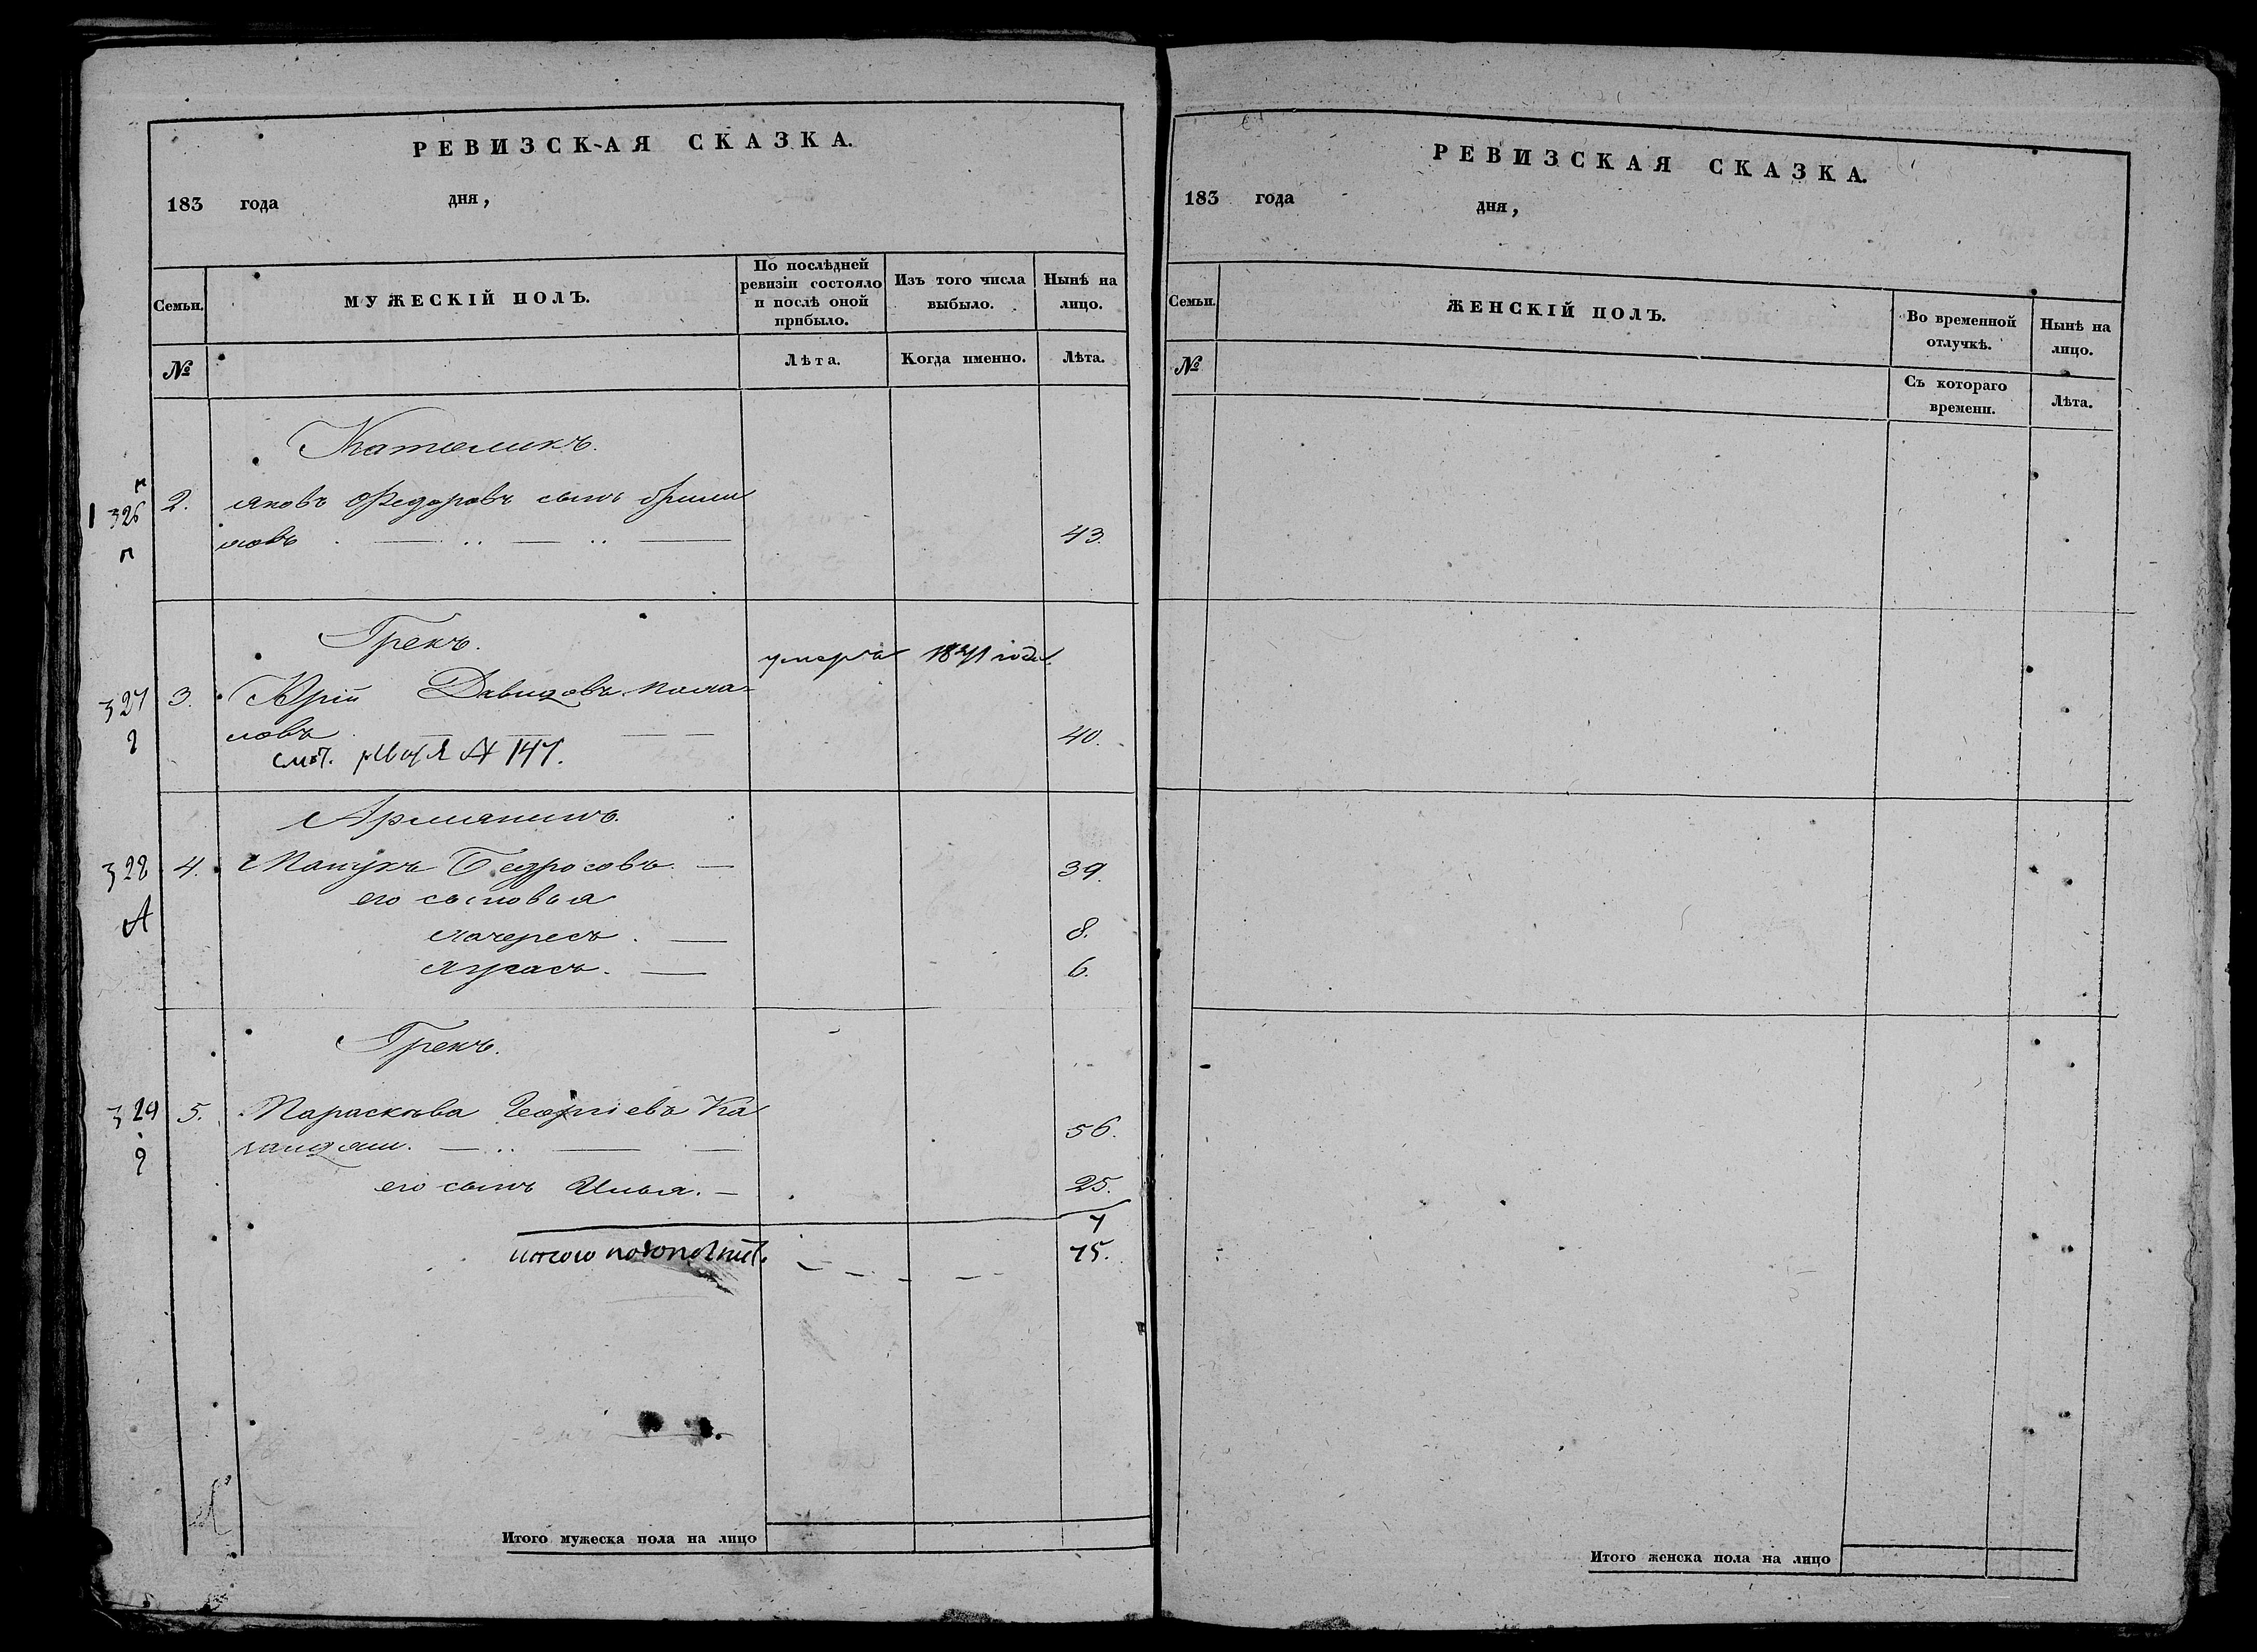 РЕВИЗСКАЯ СКАЗКА.
183 года дня,
Семьи.
МУЖЕСКІЙ ПОЛЪ.
По послѣдней ревизіи состояло и послѣ оной прибыло.
Изъ того числа выбыло.
Нынѣ на лицо.
№
Лѣта.
Когда именно.
Лѣта.
Католикъ.
326 2. Яковъ Федоровъ сынъ
43.
Грекъ.
умеръ 1841 года.
327 3. Юрій Давидовъ
40.
147.
Армянинъ.
328 4. Манукъ Бедросовъ. 39.
А
его сыновья
8.
6.
Грекъ.
329 5. Параскева Георгіевъ Ка
56.
его сынъ Илья. 25.
7
итого
75.
Итого мужеска пола на лицо
РЕВИЗСКАЯ СКАЗКА.
183 года дня,
Семьи.
ЖЕНСКІЙ ПОЛЪ.
Во временной отлучкѣ.
Нынѣ на лицо.
№
Съ котораго времени.
Лѣта.
Итого женска пола на лицо